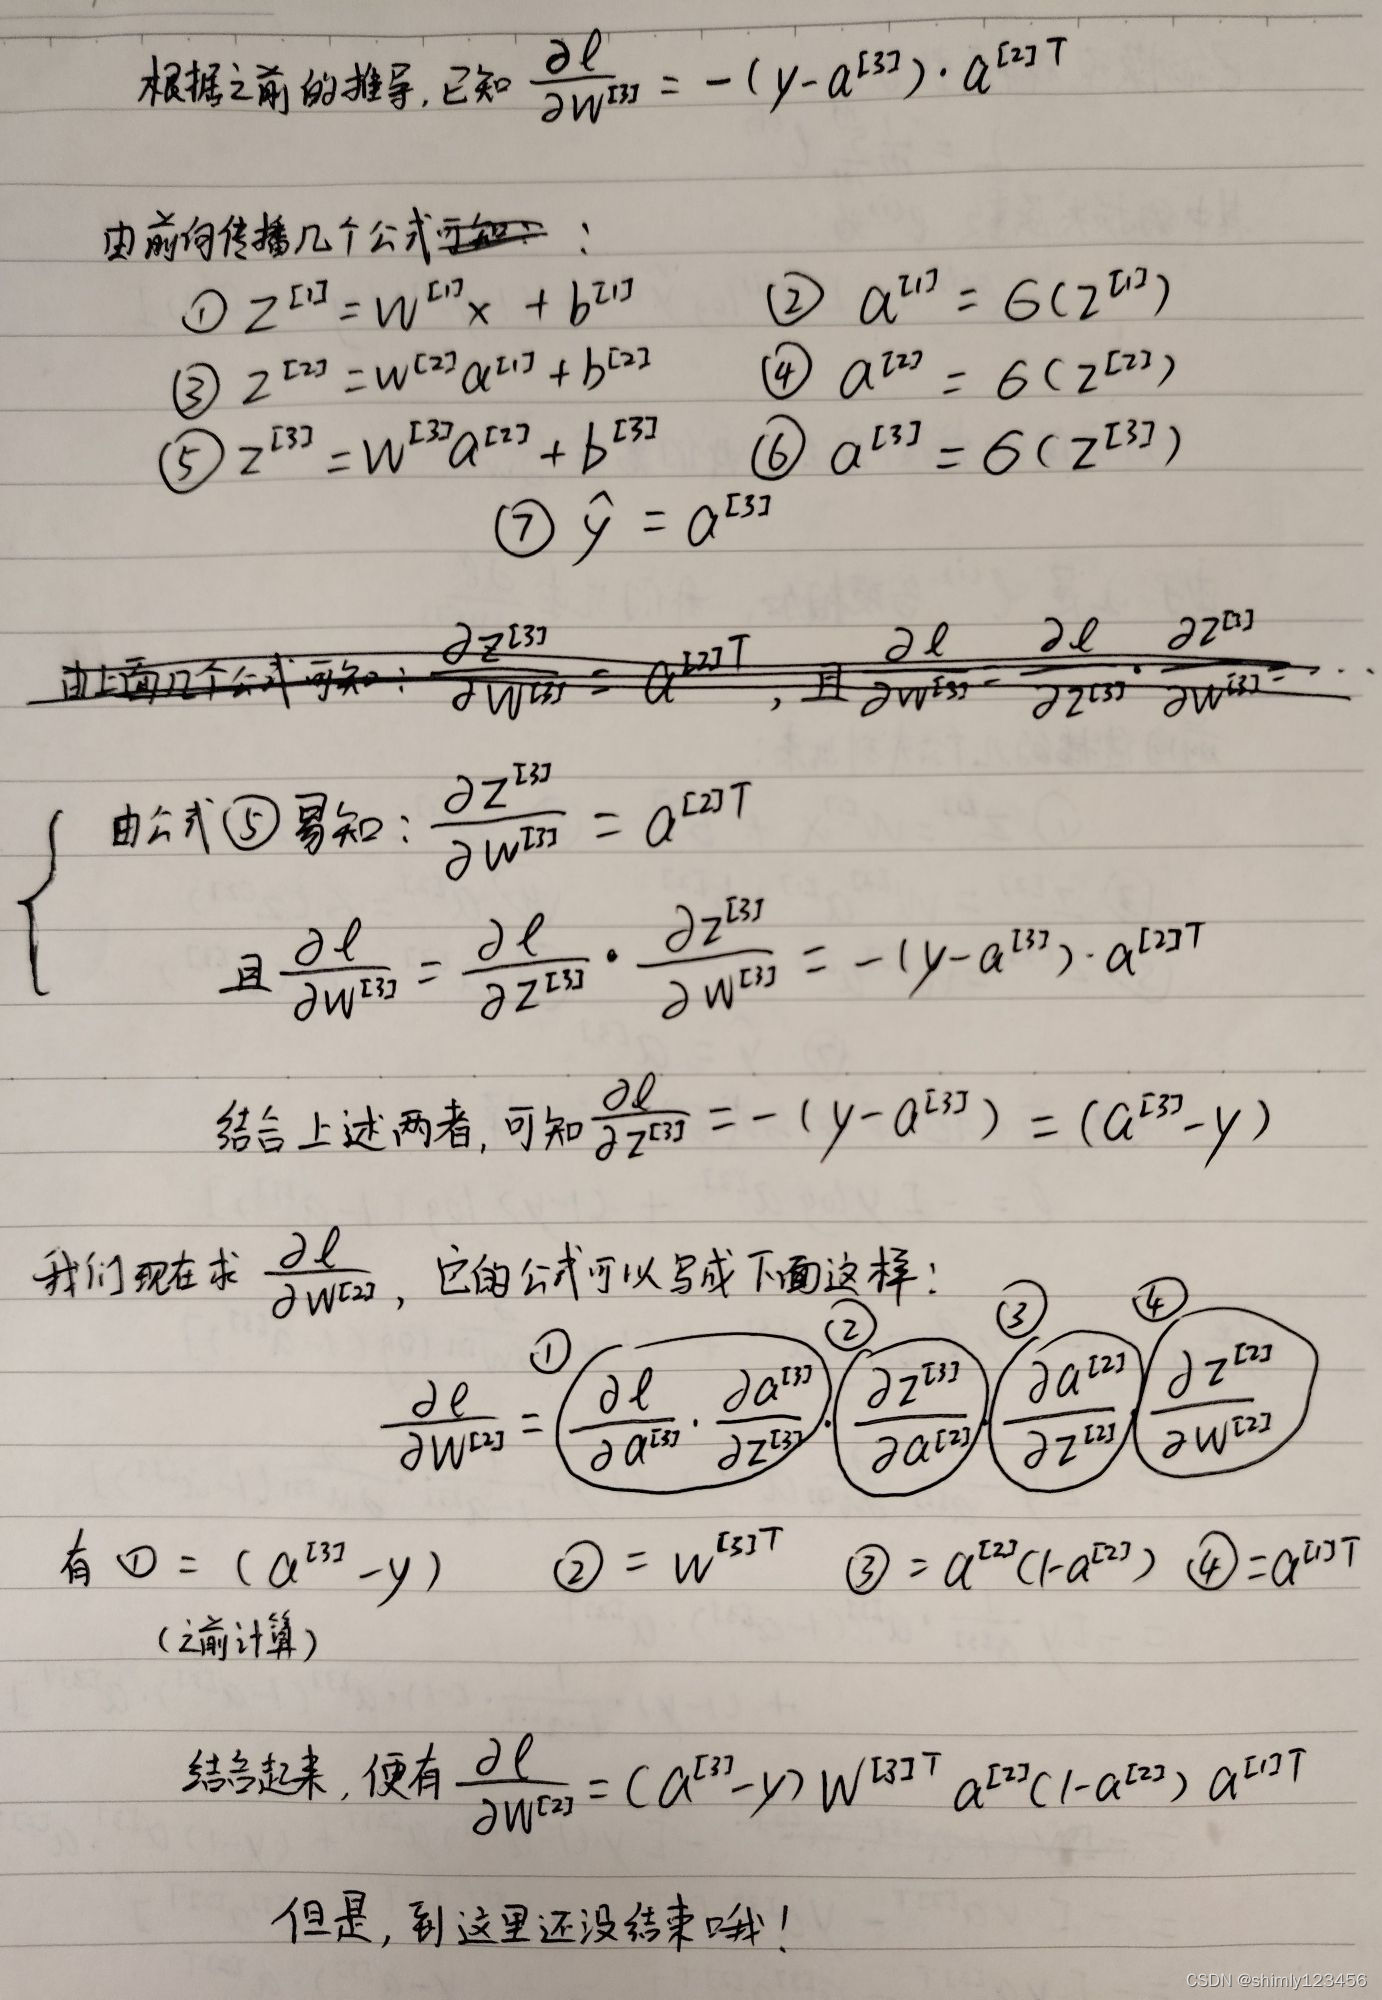 根据之前的推导,已知 ∂ℓ/∂W^[3] = -(y-a^[3])·a^[2]T
由前向传播几个公式可知:
① z^[1] = W^[1]x + b^[1] ② a^[1] = σ(z^[1])
③ z^[2] = W^[2]a^[1] + b^[2] ④ a^[2] = σ(z^[2])
⑤ z^[3] = W^[3]a^[2] + b^[3] ⑥ a^[3] = σ(z^[3])
⑦ ŷ = a^[3]
由上面几个公式可知: ∂z^[3]/∂W^[3] = a^[2]T, 且 ∂ℓ/∂W^[3] = ∂ℓ/∂z^[3] · ∂z^[3]/∂W^[3] = ...
由公式⑤易知: ∂z^[3]/∂W^[3] = a^[2]T
且 ∂ℓ/∂W^[3] = ∂ℓ/∂z^[3] · ∂z^[3]/∂W^[3] = -(y-a^[3])·a^[2]T
结合上述两者,可知 ∂ℓ/∂z^[3] = -(y-a^[3]) = (a^[3]-y)
我们现在求 ∂ℓ/∂W^[2], 它的公式可以写成下面这样:
① ② ③ ④
∂ℓ/∂W^[2] = ∂ℓ/∂a^[3] · ∂a^[3]/∂z^[3] · ∂z^[3]/∂a^[2] · ∂a^[2]/∂z^[2] · ∂z^[2]/∂W^[2]
有 ① = (a^[3]-y) ② = W^[3]T ③ = a^[2](1-a^[2]) ④ = a^[1]T
(之前计算)
结合起来,便有 ∂ℓ/∂W^[2] = (a^[3]-y) W^[3]T a^[2](1-a^[2]) a^[1]T
但是,到这里还没结束哦!
CSDN @shimly123456